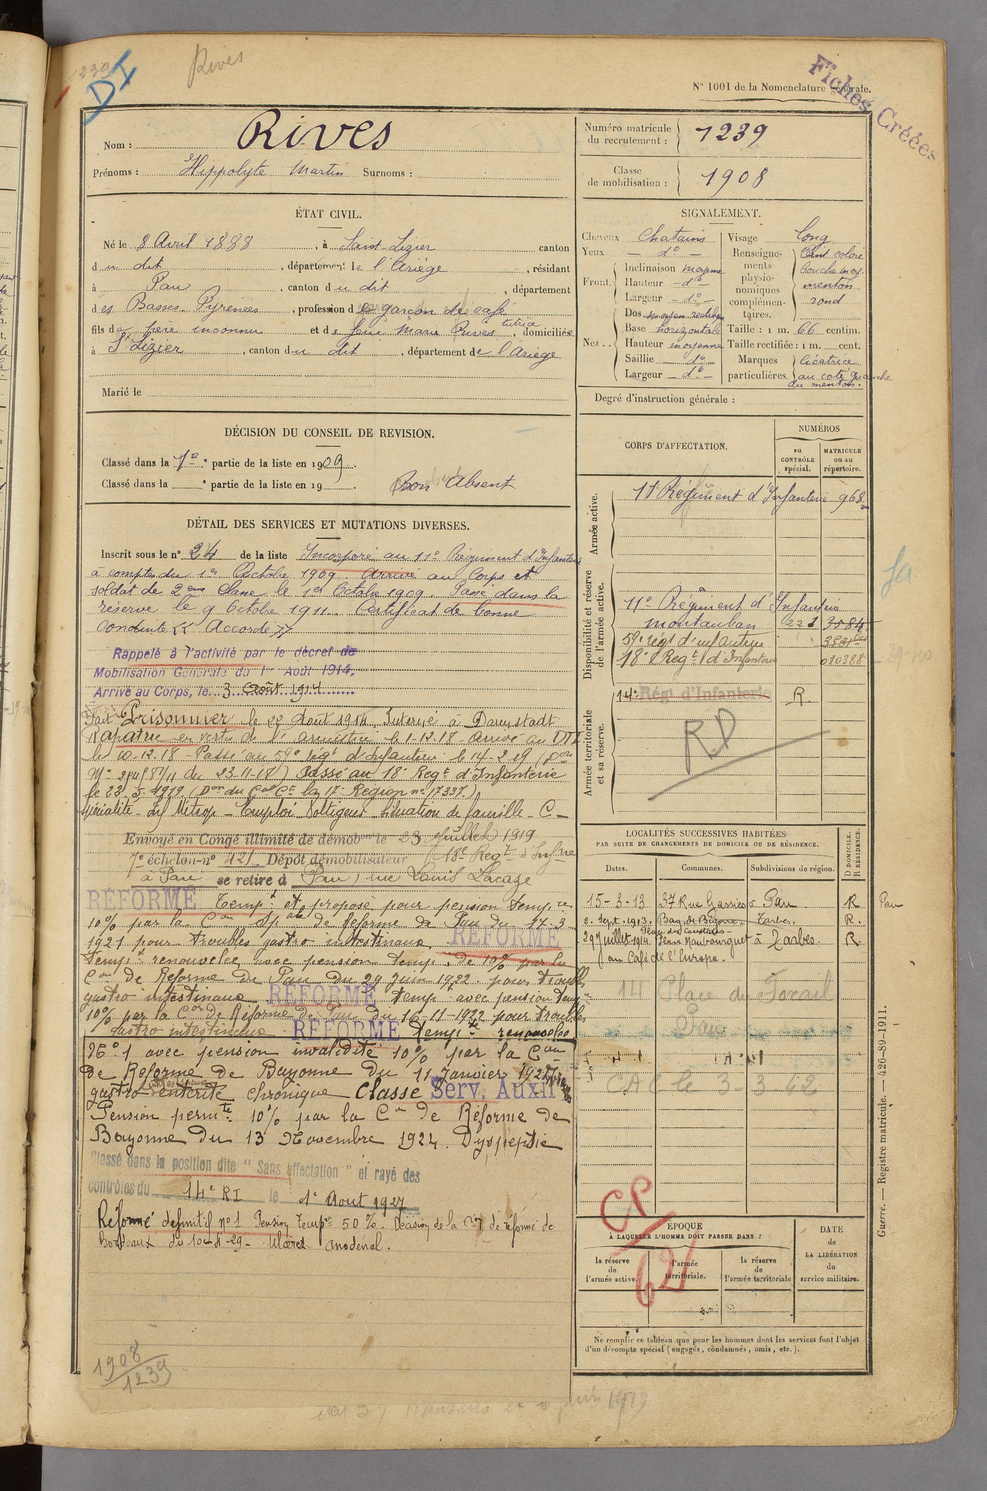 1239
DI
Rives
N° 1001 de la Nomenclature Générale.
Fiches Créées
Nom : Rives
Prénoms : Hippolyte Martin Surnoms :
ÉTAT CIVIL.
Né le 8 Avril 1888, à Saint-Lizier canton
du dit, département de l'Ariège, résidant
à Pau, canton du dit, département
des Basses-Pyrénées, profession de garçon de café
fils de père inconnu et de feue Marie Rives tutrice, domiciliés
à St Lizier, canton du dit, département de l'Ariège
Marié le
DÉCISION DU CONSEIL DE REVISION.
Classé dans la 1e partie de la liste en 1909.
Classé dans la ° partie de la liste en 19 Bon Absent
DÉTAIL DES SERVICES ET MUTATIONS DIVERSES.
Inscrit sous le n° 24 de la liste Incorporé au 11e Régiment d'Infanterie
à compter du 1er Octobre 1909. Arrivé au Corps et
soldat de 2ème Classe le 1er Octobre 1909. Passé dans la
réserve le 9 Octobre 1911. Certificat de bonne
conduite "Accordé"
Rappelé à l'activité par le décret de
Mobilisation Générale du 1er Août 1914.
Arrivé au Corps, le 3 Août 1914
Fait Prisonnier le 22 Août 1914. Interné à Darmstadt
Rapatrié en vertu de l'armistice le 1-12-18. Arrivé au DTI
le 10-12-18. Passé au 59e rég d'infanterie le 14-2-19
du 23-11-18) Passé au 18e Regt d'Infanterie
le 22-5-1919 (Don du Gal Ct la 17e Région n° 17337)
Emploi Voltigeur Situation de famille C
Envoyé en Congé illimité de démobon le 23 Juillet 1919
7e échelon n° 421 Dépôt démobilisateur 18e Regt d'Infrie
à Pau se retire à Pau, rue Louis Lacaze
RÉFORMÉ Tempt et proposé pour pension temp.re
10% par la Con Spale de Réforme de Pau du 17-3
1921 pour troubles gastro intestinaux RÉFORMÉ
Tempt renouvelée avec pension temp. de 10% par la
Con de Réforme de Pau du 29 Juin 1922 pour troubles
gastro intestinaux RÉFORMÉ Temp. avec pension Temp.
10% par la Con de Réforme de Pau du 16-11-1922 pour troubles
gastro intestinaux RÉFORMÉ Temp.t renouvelée
avec pension invalidité 10% par la Con
de Réforme de Bayonne du 11 Janvier
gastro entérite chronique Classé Serv. Auxil
Pension permte 10% par la Con de Réforme de
Bayonne du 13 Novembre 1924. Dyspeptie
Classé dans la position dite "Sans affectation" et rayé des
contrôles du 14e RI le 1e Aout 1927
Réformé définitif n°1 Pension Temp 50%. Décision de la de réforme de
Bordeaux
1908
1239
Numéro matricule du recrutement : 1239
Classe de mobilisation : 1908
SIGNALEMENT.
Cheveux Chatains
Yeux d°
Front. Inclinaison moyenne
Hauteur d°
Largeur d°
Nez. Dos moyen rectiligne
Base horizontale
Hauteur moyenne
Saillie d°
Largeur d°
Visage long
Renseignements physionomiques complémentaires. teint coloré
bouche moy.
menton
rond
Taille : 1 m. 66 centim.
Taille rectifiée : 1 m. cent.
Marques particulières. Cicatrice
au coté gauche
du menton.
Degré d'instruction générale :
CORPS D'AFFECTATION.
NUMÉROS
au CONTRÔLE spécial.
MATRICULE ou au répertoire.
Armée active.
11 Régiment d'Infanterie 968
Disponibilité et réserve de l'armée active.
11e Régiment d'Infanterie
Montauban 221 3584
59e rég d'infanterie
18e Regt d'Infanterie 010388
Armée territoriale et sa réserve.
14e Régt d'Infanterie R.
RD
LOCALITÉS SUCCESSIVES HABITÉES
PAR SUITE DE CHANGEMENTS DE DOMICILE OU DE RÉSIDENCE.
Dates. Communes. Subdivisions de région. D DOMICILE. R RÉSIDENCE.
15-3-13 37 Rue Gassies Pau R Pau
2. Sept. 1913. Tarbes. R.
29 Juillet 1914 Place Maubourguet à Tarbes. R
au Café de l'Europe.
14 Place du Foirail
Pau
CAC le 3-3-42
CP
62
ÉPOQUE
À LAQUELLE L'HOMME DOIT PASSER DANS :
la réserve de l'armée active.
l'armée territoriale.
la réserve de l'armée territoriale
DATE de LA LIBÉRATION du service militaire.
Ne remplir ce tableau que pour les hommes dont les services font l'objet
d'un décompte spécial (engagés, condamnés, omis, etc.).
Guerre. — Registre matricule. — 426-89-1911.